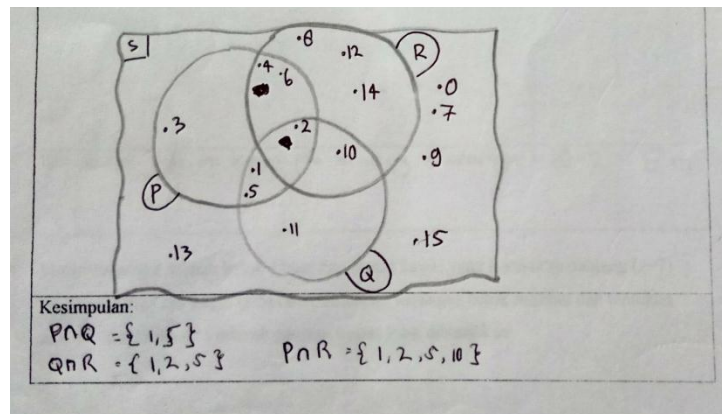 S
.8
.12
R
.4
.6
.14
.0
.7
.3
.2
.10
.9
.1
.5
P
.11
.13
.15
Q
Kesimpulan:
P∩Q = {1,5}
Q∩R = {1,2,5}
P∩R = {1,2,5,10}